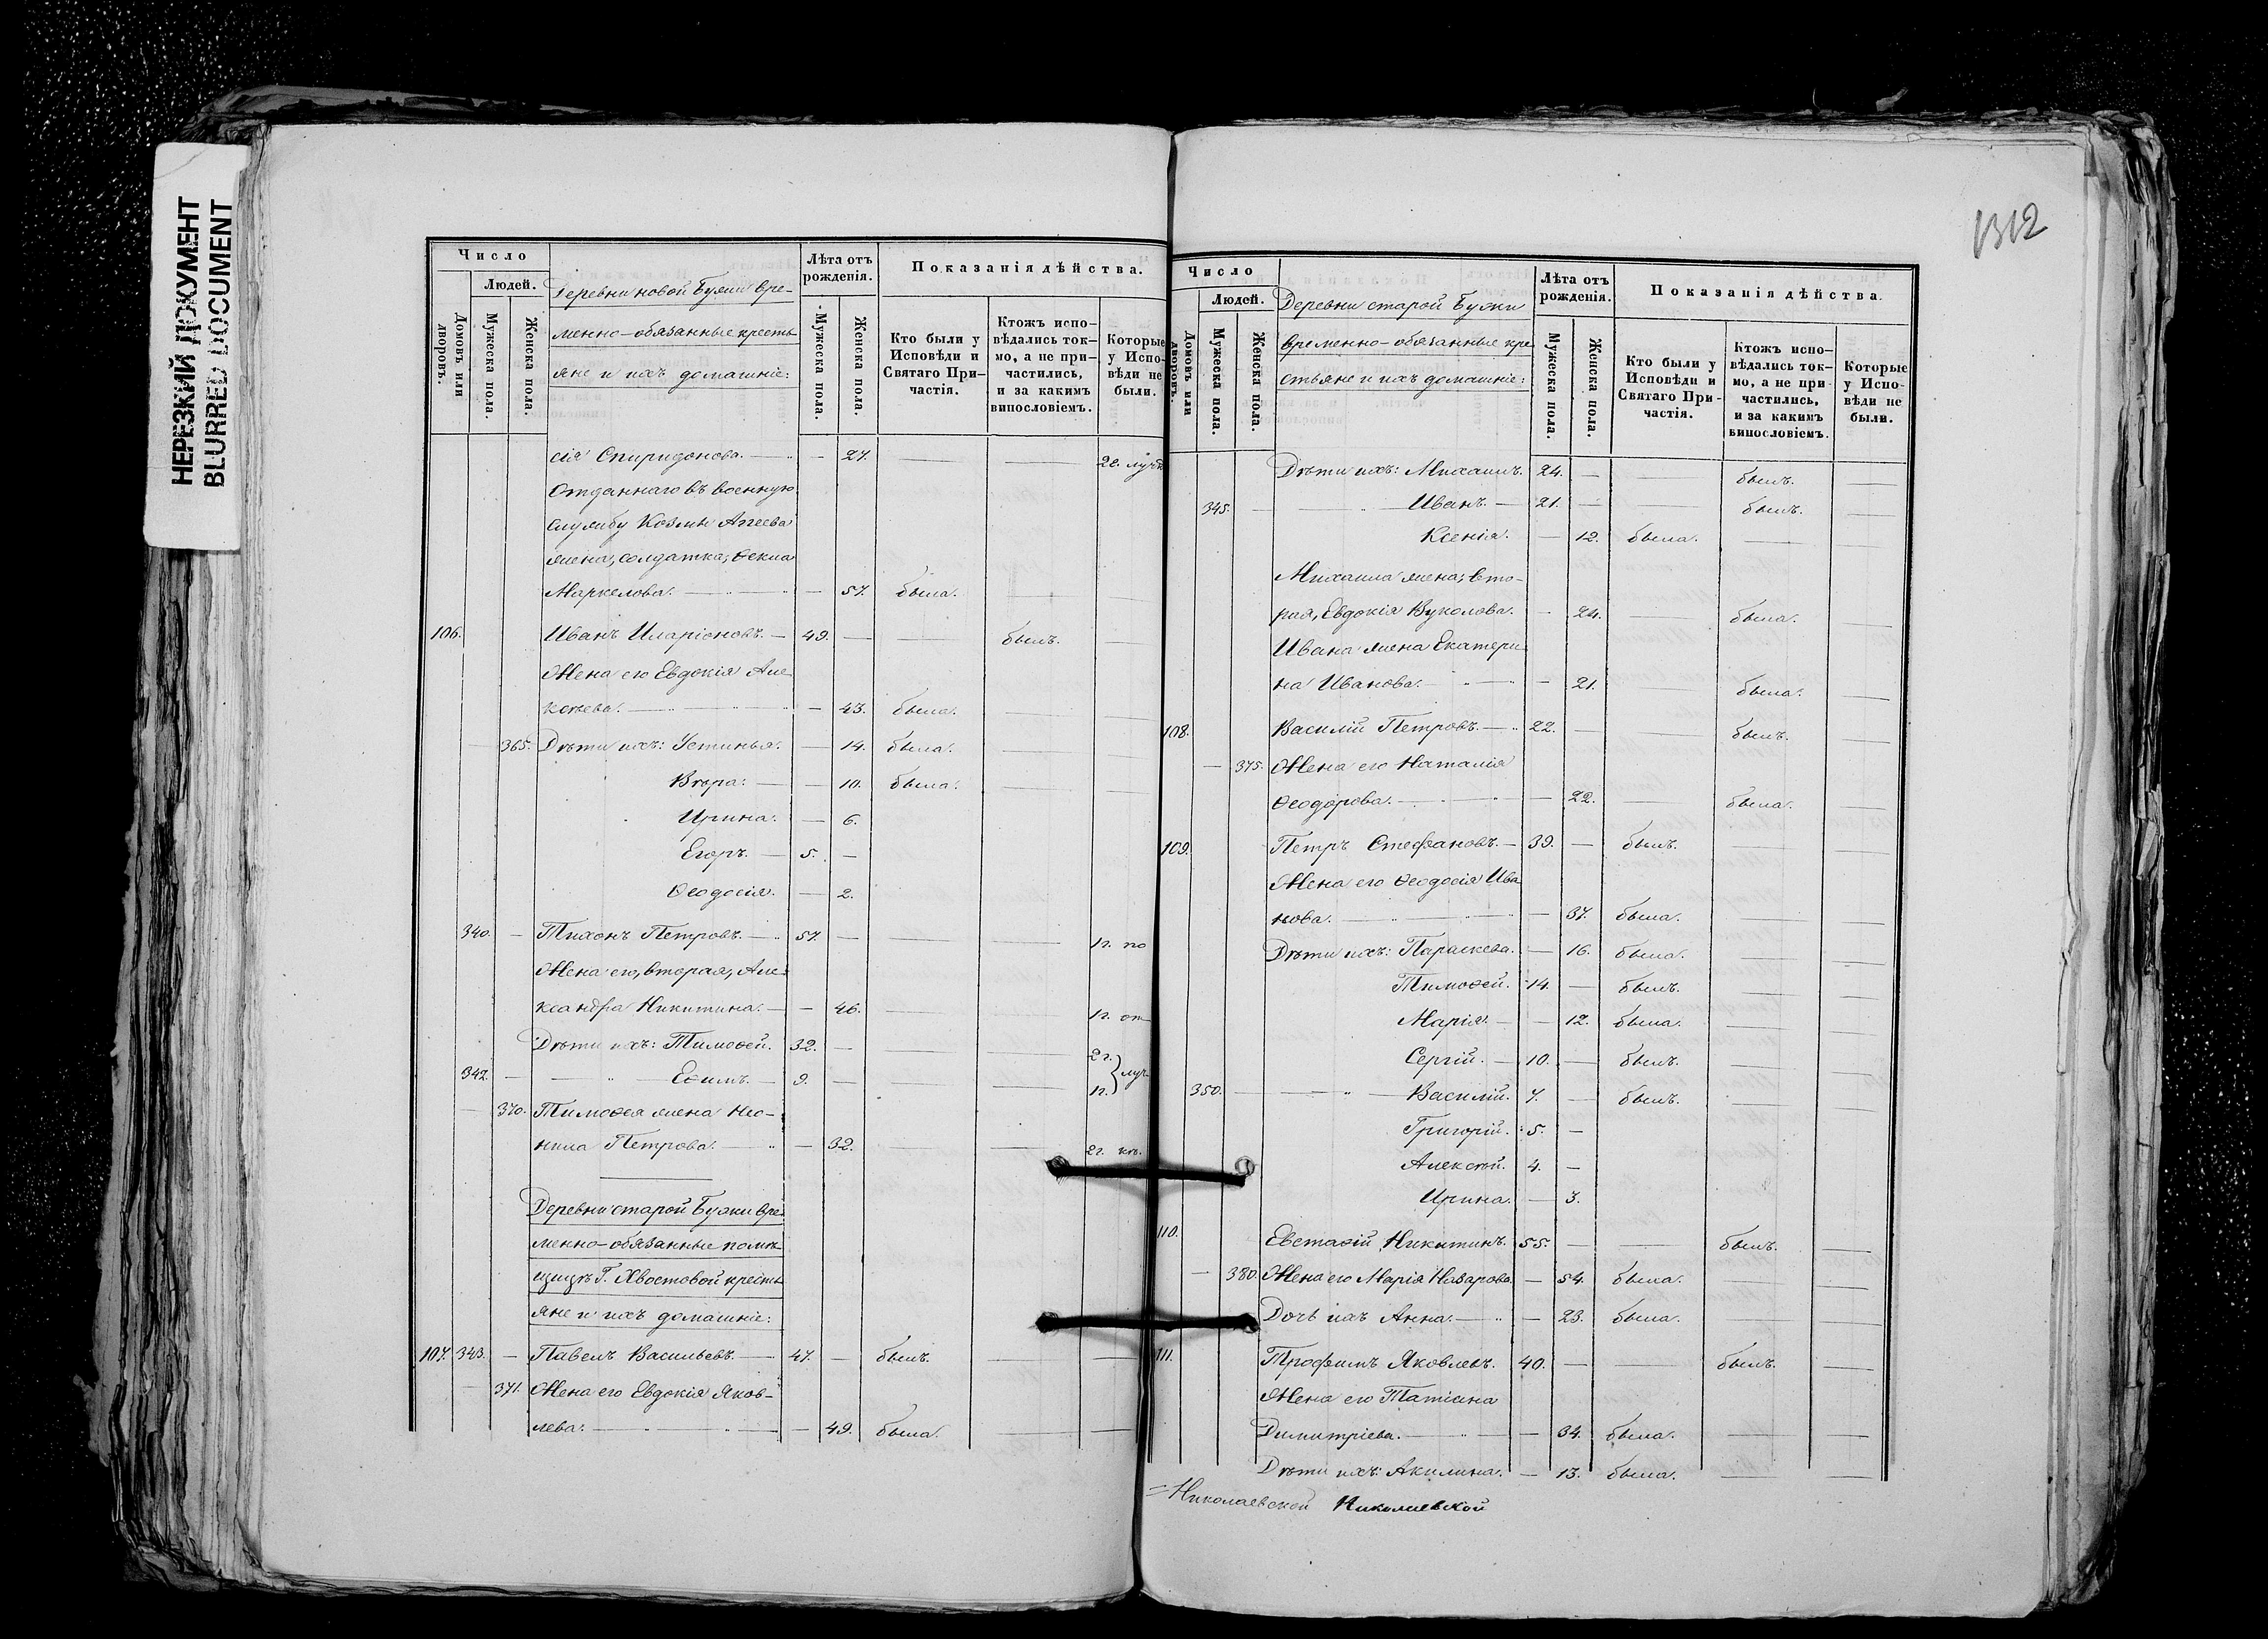 НЕРЕЗКИЙ ДОКУМЕНТ
BLURRED DOCUMENT
Число
Людей.
Домовъ или дворовъ.
Мужеска пола.
Женска пола.
Деревни новой Буяки вре-
менно-обязанные кресть
яне и ихъ домашніе:
Лѣта отъ рожденія.
Мужеска пола.
Женска пола.
Показанія дѣйства.
Кто были у Исповѣди и Святаго При-частія.
Ктожъ испо-вѣдались ток-мо, а не при-частились, и за какимъ винословіемъ.
Которые у Испо-вѣди не были.
сія Спиридонова. — 27. — — 2г. луч
Отданнаго въ военную
службу Козмы Агеева
жена, солдатка, Ѳекла
Маркелова. — 57. была. — —
106. Иванъ Иларіоновъ. — 49. — — былъ. —
Жена его Евдокія Але
ксѣева. — 43. была. — —
— 365. Дѣти ихъ: Устинья. — 14. была. — —
Вѣра. — 10. была. — —
Ирина. — 6.
Егоръ. — 5. —
Ѳеодосія. — 2.
340. — Тихонъ Петровъ. — 57. — — — 1г. по
Жена его, вторая, Але-
ксандра Никитина. — 46. — — 1г. от
Дѣти ихъ: Тимоѳей. 32. — — — 2г.
342. — — Еѳимъ. — 9. — — — 1г. } луч
— 370. Тимоѳея жена Нео-
нила Петрова. — 32. — — 2г. къ.
Деревни старой Буяки вре
менно-обязанные помѣ
щицѣ Г. Хвостовой кресть
яне и ихъ домашніе:
107. 343. — Павелъ Васильевъ. — 47. — былъ. — —
— 371. Жена его Евдокія Яков-
лева. — 49. была. — —
1312
Число
Людей.
Домовъ или дворовъ.
Мужеска пола.
Женска пола.
Деревни старой Буяки
временно-обязанные кре
стьяне и ихъ домашніе:
Лѣта отъ рожденія.
Мужеска пола.
Женска пола.
Показанія дѣйства.
Кто были у Исповѣди и Святаго При-частія.
Ктожъ испо-вѣдались ток-мо, а не при-частились, и за какимъ винословіемъ.
Которые у Испо-вѣди не были.
Дѣти ихъ: Михаилъ. 24. — — былъ. —
345. — — Иванъ. — 21. — — былъ. —
Ксенія. — 12. была. — —
Михаила жена, вто-
рая, Евдокія Вуколова. — 24. — была. —
Ивана жена Екатери-
на Иванова. — 21. — была. —
108. Василій Петровъ. — 22. — — былъ. —
— 375. Жена его Наталія
Ѳеодорова. — 22. — была. —
109. Петръ Стефановъ. — 39. — былъ. — —
Жена его Ѳеодосія Ива
нова. — 37. была. — —
Дѣти ихъ: Параскева. — 16. была. — —
Тимоѳей. 14. — былъ. — —
Марія. — 12. была. — —
Сергій. — 10. — былъ. — —
350. — — Василій. 7. — былъ. — —
Григорій. 5. —
Алексѣй. 4. —
Ирина. — 3.
110. Евстаѳій Никитинъ. 55. — — былъ. —
— 380. Жена его Марія Назарова — 54. была. — —
Дочь ихъ Анна. — 23. была. — —
111. Трофимъ Яковлевъ. 40. — — былъ. —
Жена его Татіана
Димитріева. — 34. была. — —
Дѣти ихъ: Акилина. — 13. была. — —
= Николаевской Николаевской